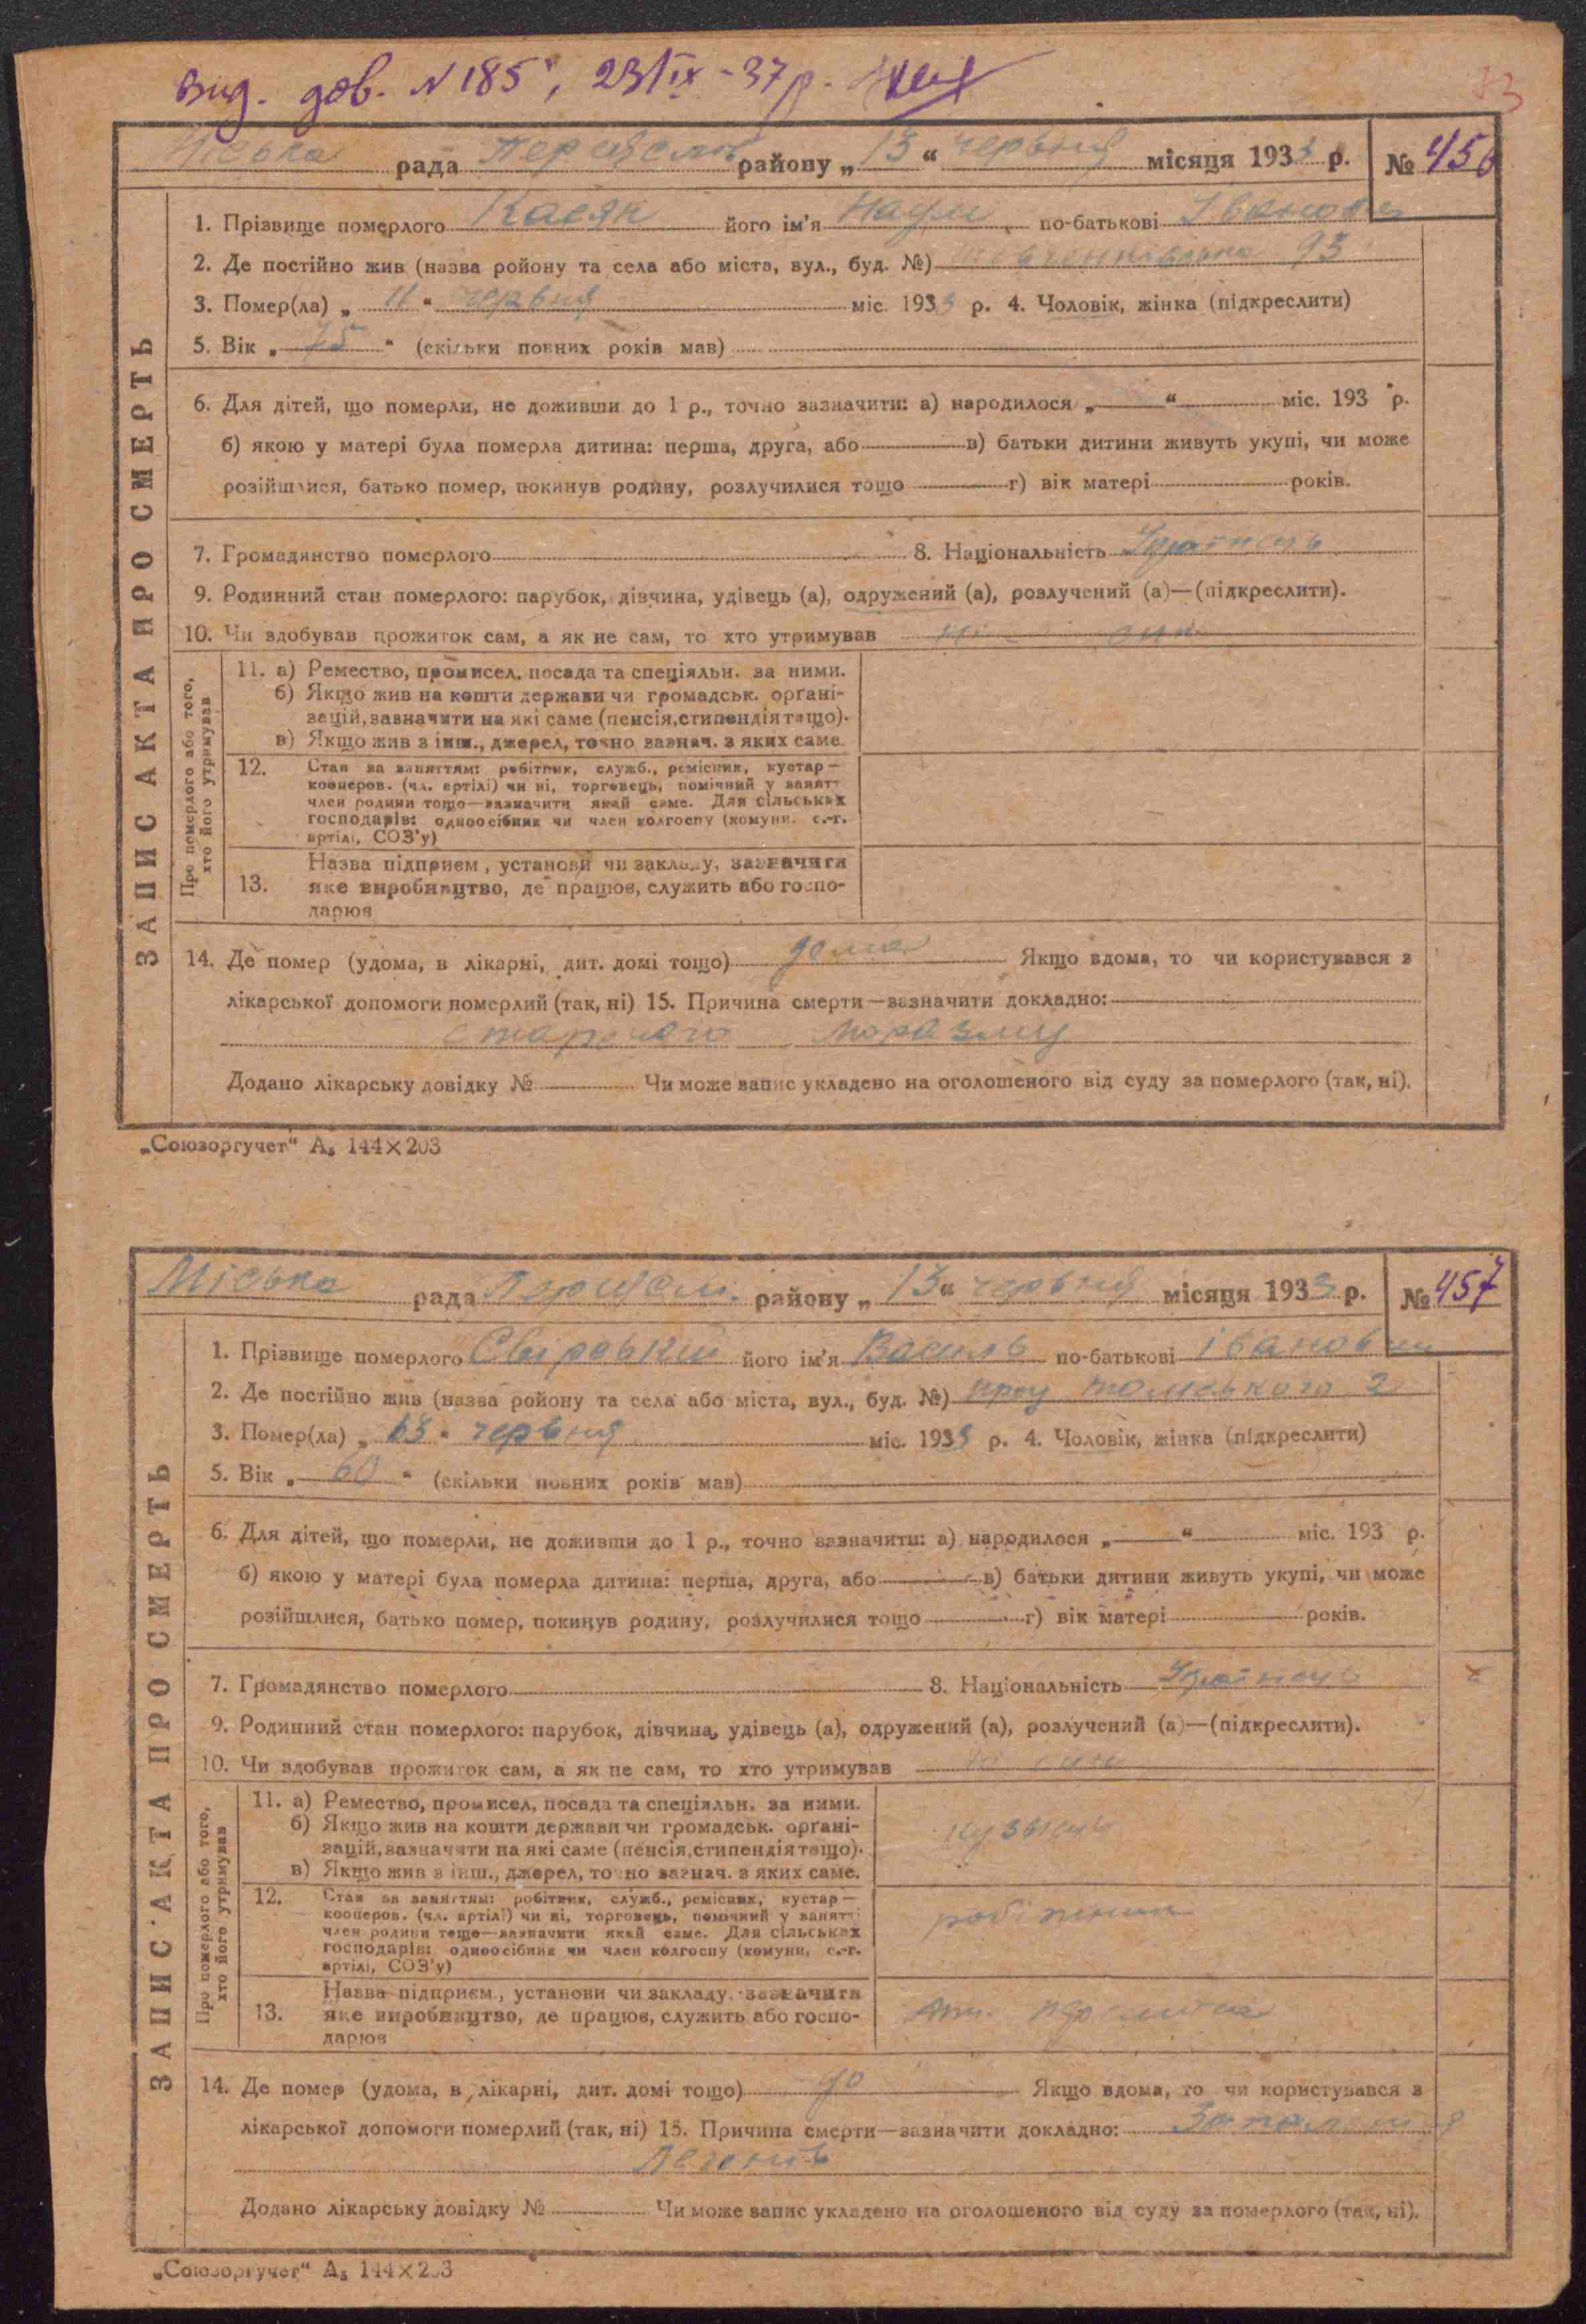 Вид. дов. N 185, 23/ІХ - 37 р.
Міська рада Переясл. району „13“ червня місяця 1933 р. № 456
1. Прізвище померлого Касян його ім'я Наум по-батькові Іванов
2. Де постійно жив (назва ройону та села або міста, вул., буд. №) 93
3. Помер(ла) „11“ червня міс. 1933 р. 4. Чоловік, жінка (підкреслити)
5. Вік „75“ (скільки повних років мав)
6. Для дітей, що померли, не доживши до 1 р., точно зазначити: а) народилося „ “ міс. 193 р.
б) якою у матері була померла дитина: перша, друга, або в) батьки дитини живуть укупі, чи може
розійшлися, батько помер, покинув родину, розлучилися тощо г) вік матері років.
7. Громадянство померлого 8. Національність Українець
9. Родинний стан померлого: парубок, дівчина, удівець (а), одружений (а), розлучений (а)—(підкреслити).
10. Чи здобував прожиток сам, а як не сам, то хто утримував
ЗАПИС АКТА ПРО СМЕРТЬ
Про померлого або того,
хто його утримував
11. а) Ремество, промисел, посада та спеціяльн. за ними.
б) Якщо жив на кошти держави чи громадськ. орґані-
зацій, зазначити на які саме (пенсія, стипендія тощо).
в) Якщо жив з інш., джерел, точно зазнач. з яких саме.
12. Стан за заняттям: робітник, служб., ремісник, кустар—
кооперов. (чл. артілі) чи ні, торговець, помічний у занятт
член родини тощо—зазначити який саме. Для сільських
господарів: одноосібник чи член колгоспу (комуни, с.-г.
артілі, СОЗ'у)
13. Назва підприєм., установи чи закладу, зазначити
яке виробництво, де працює, служить або госпо-
дарює
14. Де помер (удома, в лікарні, дит. домі тощо) дома Якщо вдома, то чи користувався з
лікарської допомоги померлий (так, ні) 15. Причина смерти—зазначити докладно:
старечого маразму
Додано лікарську довідку № Чи може запис укладено на оголошеного від суду за померлого (так, ні).
„Союзоргучет“ А₅ 144×203
Міська рада Переясл. району „13“ червня місяця 1933 р. № 457
1. Прізвище померлого Свіровкий його ім'я Василь по-батькові Іванович
2. Де постійно жив (назва ройону та села або міста, вул., буд. №) 2
3. Помер(ла) „13“ червня міс. 1933 р. 4. Чоловік, жінка (підкреслити)
5. Вік „60“ (скільки повних років мав)
6. Для дітей, що померли, не доживши до 1 р., точно зазначити: а) народилося „ “ міс. 193 р.
б) якою у матері була померла дитина: перша, друга, або в) батьки дитини живуть укупі, чи може
розійшлися, батько помер, покинув родину, розлучилися тощо г) вік матері років.
7. Громадянство померлого 8. Національність Українець
9. Родинний стан померлого: парубок, дівчина, удівець (а), одружений (а), розлучений (а)—(підкреслити).
10. Чи здобував прожиток сам, а як не сам, то хто утримував
ЗАПИС АКТА ПРО СМЕРТЬ
Про померлого або того,
хто його утримував
11. а) Ремество, промисел, посада та спеціяльн. за ними.
б) Якщо жив на кошти держави чи громадськ. орґані-
зацій, зазначити на які саме (пенсія, стипендія тощо).
в) Якщо жив з інш., джерел, точно зазнач. з яких саме.
12. Стан за заняттям: робітник, служб., ремісник, кустар—
кооперов. (чл. артілі) чи ні, торговець, помічний у занятт
член родини тощо—зазначити який саме. Для сільських
господарів: одноосібник чи член колгоспу (комуни, с.-г.
артілі, СОЗ'у)
робітник
13. Назва підприєм., установи чи закладу, зазначити
яке виробництво, де працює, служить або госпо-
дарює
14. Де помер (удома, в лікарні, дит. домі тощо) Якщо вдома, то чи користувався з
лікарської допомоги померлий (так, ні) 15. Причина смерти—зазначити докладно: Запалення
легенів
Додано лікарську довідку № Чи може запис укладено на оголошеного від суду за померлого (так, ні).
„Союзоргучет“ А₅ 144×203